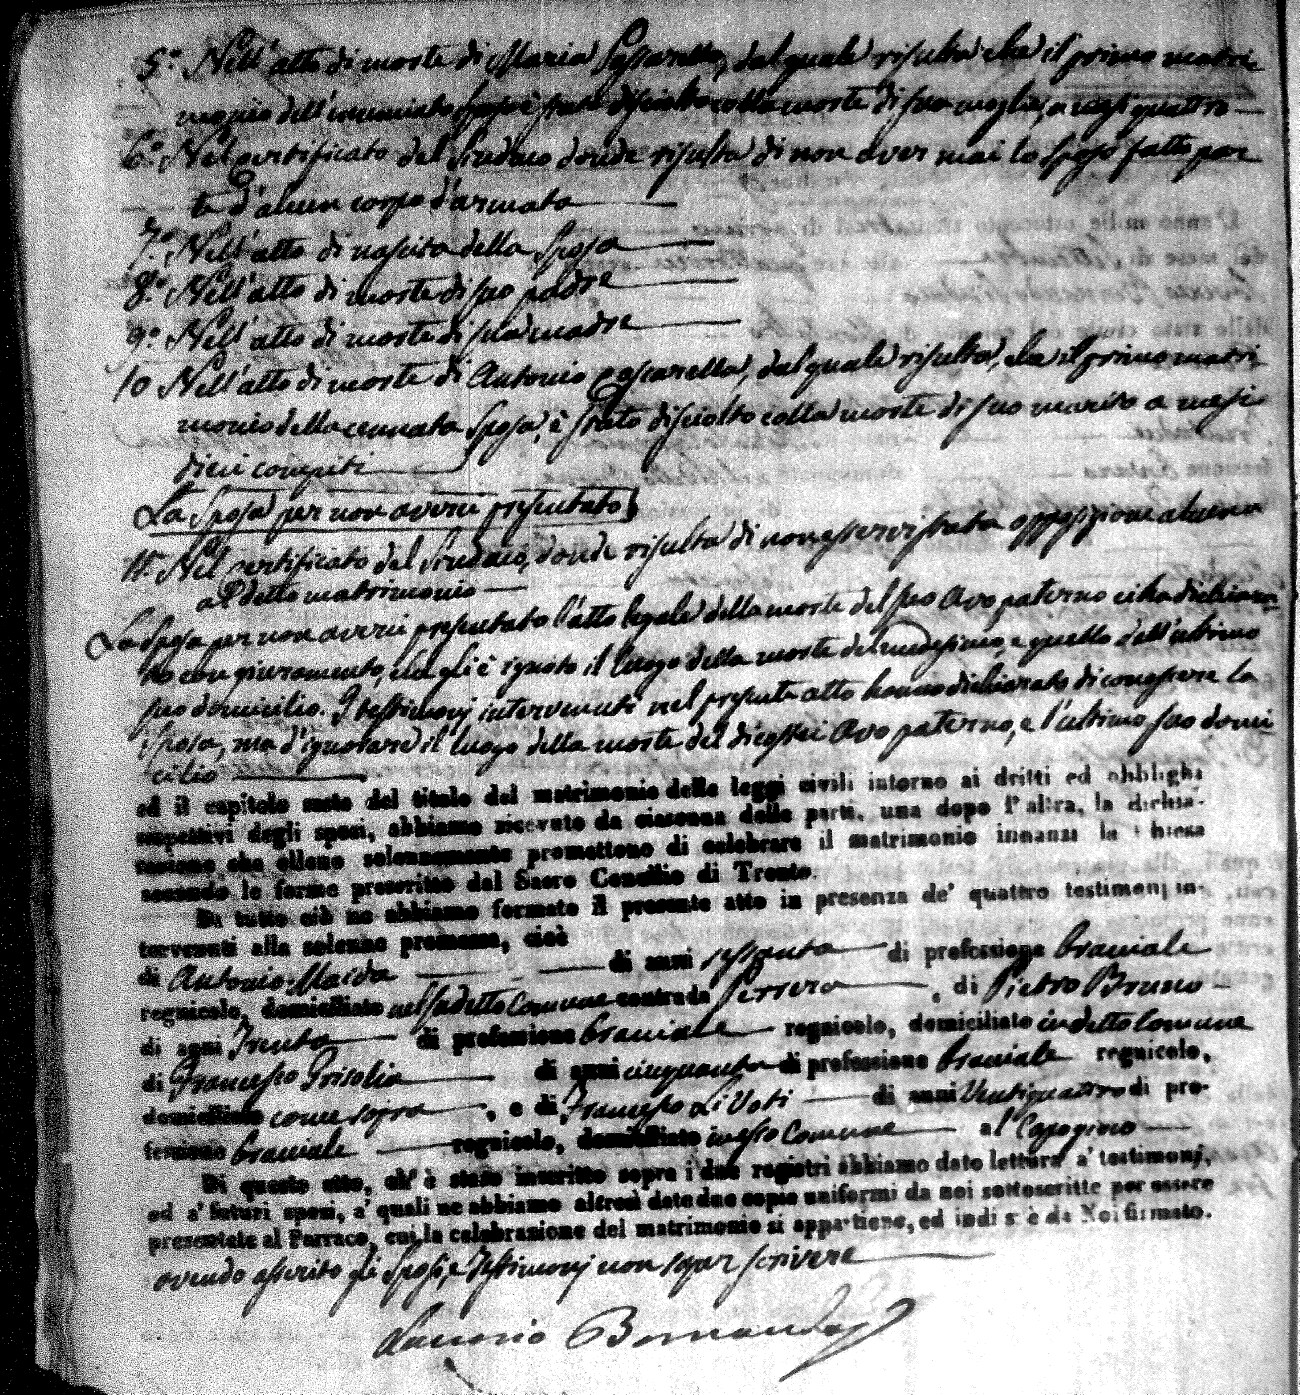 5.° Nell'atto di morte di Maria Passarella, dal quale risulta che il primo matri
monio dell'enunciato sposo è stato disciolto colla morte di sua moglie, a
6.° Nel certificato del Sindaco donde risulta di non aver mai lo sposo fatto par
te d'alcun corpo d'armata
7.° Nell'atto di nascita della Sposa
8.° Nell'atto di morte di suo padre
9.° Nell'atto di morte di sua madre
10 Nell'atto di morte di Antonio Passarella, dal quale risulta, che il primo matri
monio della cennata Sposa, è stato disciolto colla morte di suo marito a mesi
dieci compiti
La Sposa per non averci presentato
11.° Nel certificato del Sindaco, donde risulta di non esservi stata opposizione alcuna
al detto matrimonio
La Sposa per non averci presentato l'atto legale della morte del suo Avo paterno ci ha dichiara
to con giuramento, che gli è ignoto il luogo della morte del medesimo, e quello dell'ultimo
suo domicilio. I testimonj intervenuti nel presente atto hanno dichiarato di conoscere la
Sposa, ma d'ignorare il luogo della morte del Avo paterno, e l'ultimo suo domi
cilio
ed il capitolo sesto del titolo del matrimonio delle leggi civili intorno ai dritti ed obblighi
respettivi degli sposi, abbiamo ricevuto da ciascuna delle parti, una dopo l'altra, la dichia-
razione che elleno solennemente promettono di celebrare il matrimonio innanzi la Chiesa
secondo le forme prescritte dal Sacro Concilio di Trento.
Di tutto ciò ne abbiamo formato il presente atto in presenza de' quattro testimonj in-
tervenuti alla solenne promessa, cioè
di Antonio Maida di anni sessanta di professione braciale
regnicolo, domiciliato nel sudetto Comune contrada Serrera, di Pietro Bruno
di anni Trenta di professione braciale regnicolo, domiciliato in detto Comune
di Francesco Grisolia di anni cinquanta di professione braciale regnicolo,
domiciliato come sopra, e di Francesco Li Voti di anni Ventiquattro di pro-
fessione braciale regnicolo, domiciliato in esso Comune al Capogiro
Di questo atto, ch' è stato inscritto sopra i due registri abbiamo dato lettura a' testimonj,
ed a' futuri sposi, a' quali ne abbiamo altresì date due copie uniformi da noi sottoscritte per essere
presentate al Parroco, cui la celebrazione del matrimonio si appartiene, ed indi si è da Noi firmato.
avendo asserito gli Sposi, e Testimonj non saper scrivere